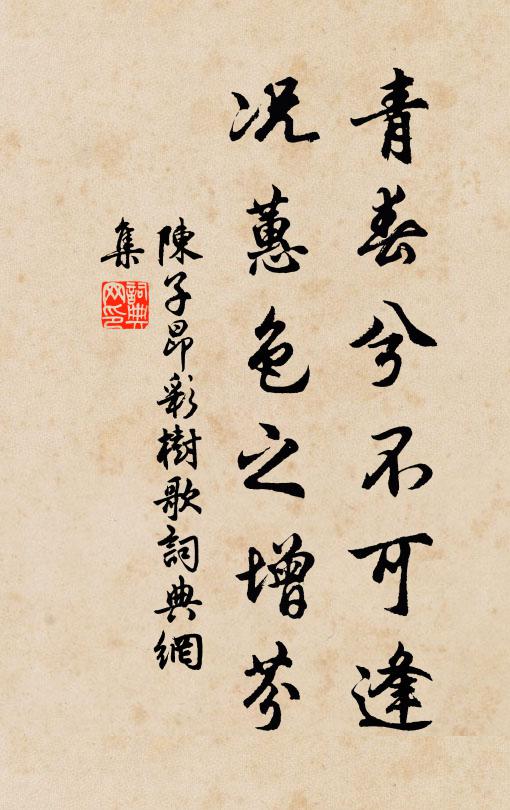 青春兮不可逢
况蕙色之增芬
陳子昂彩樹歌詞典網
集
詞典
网印